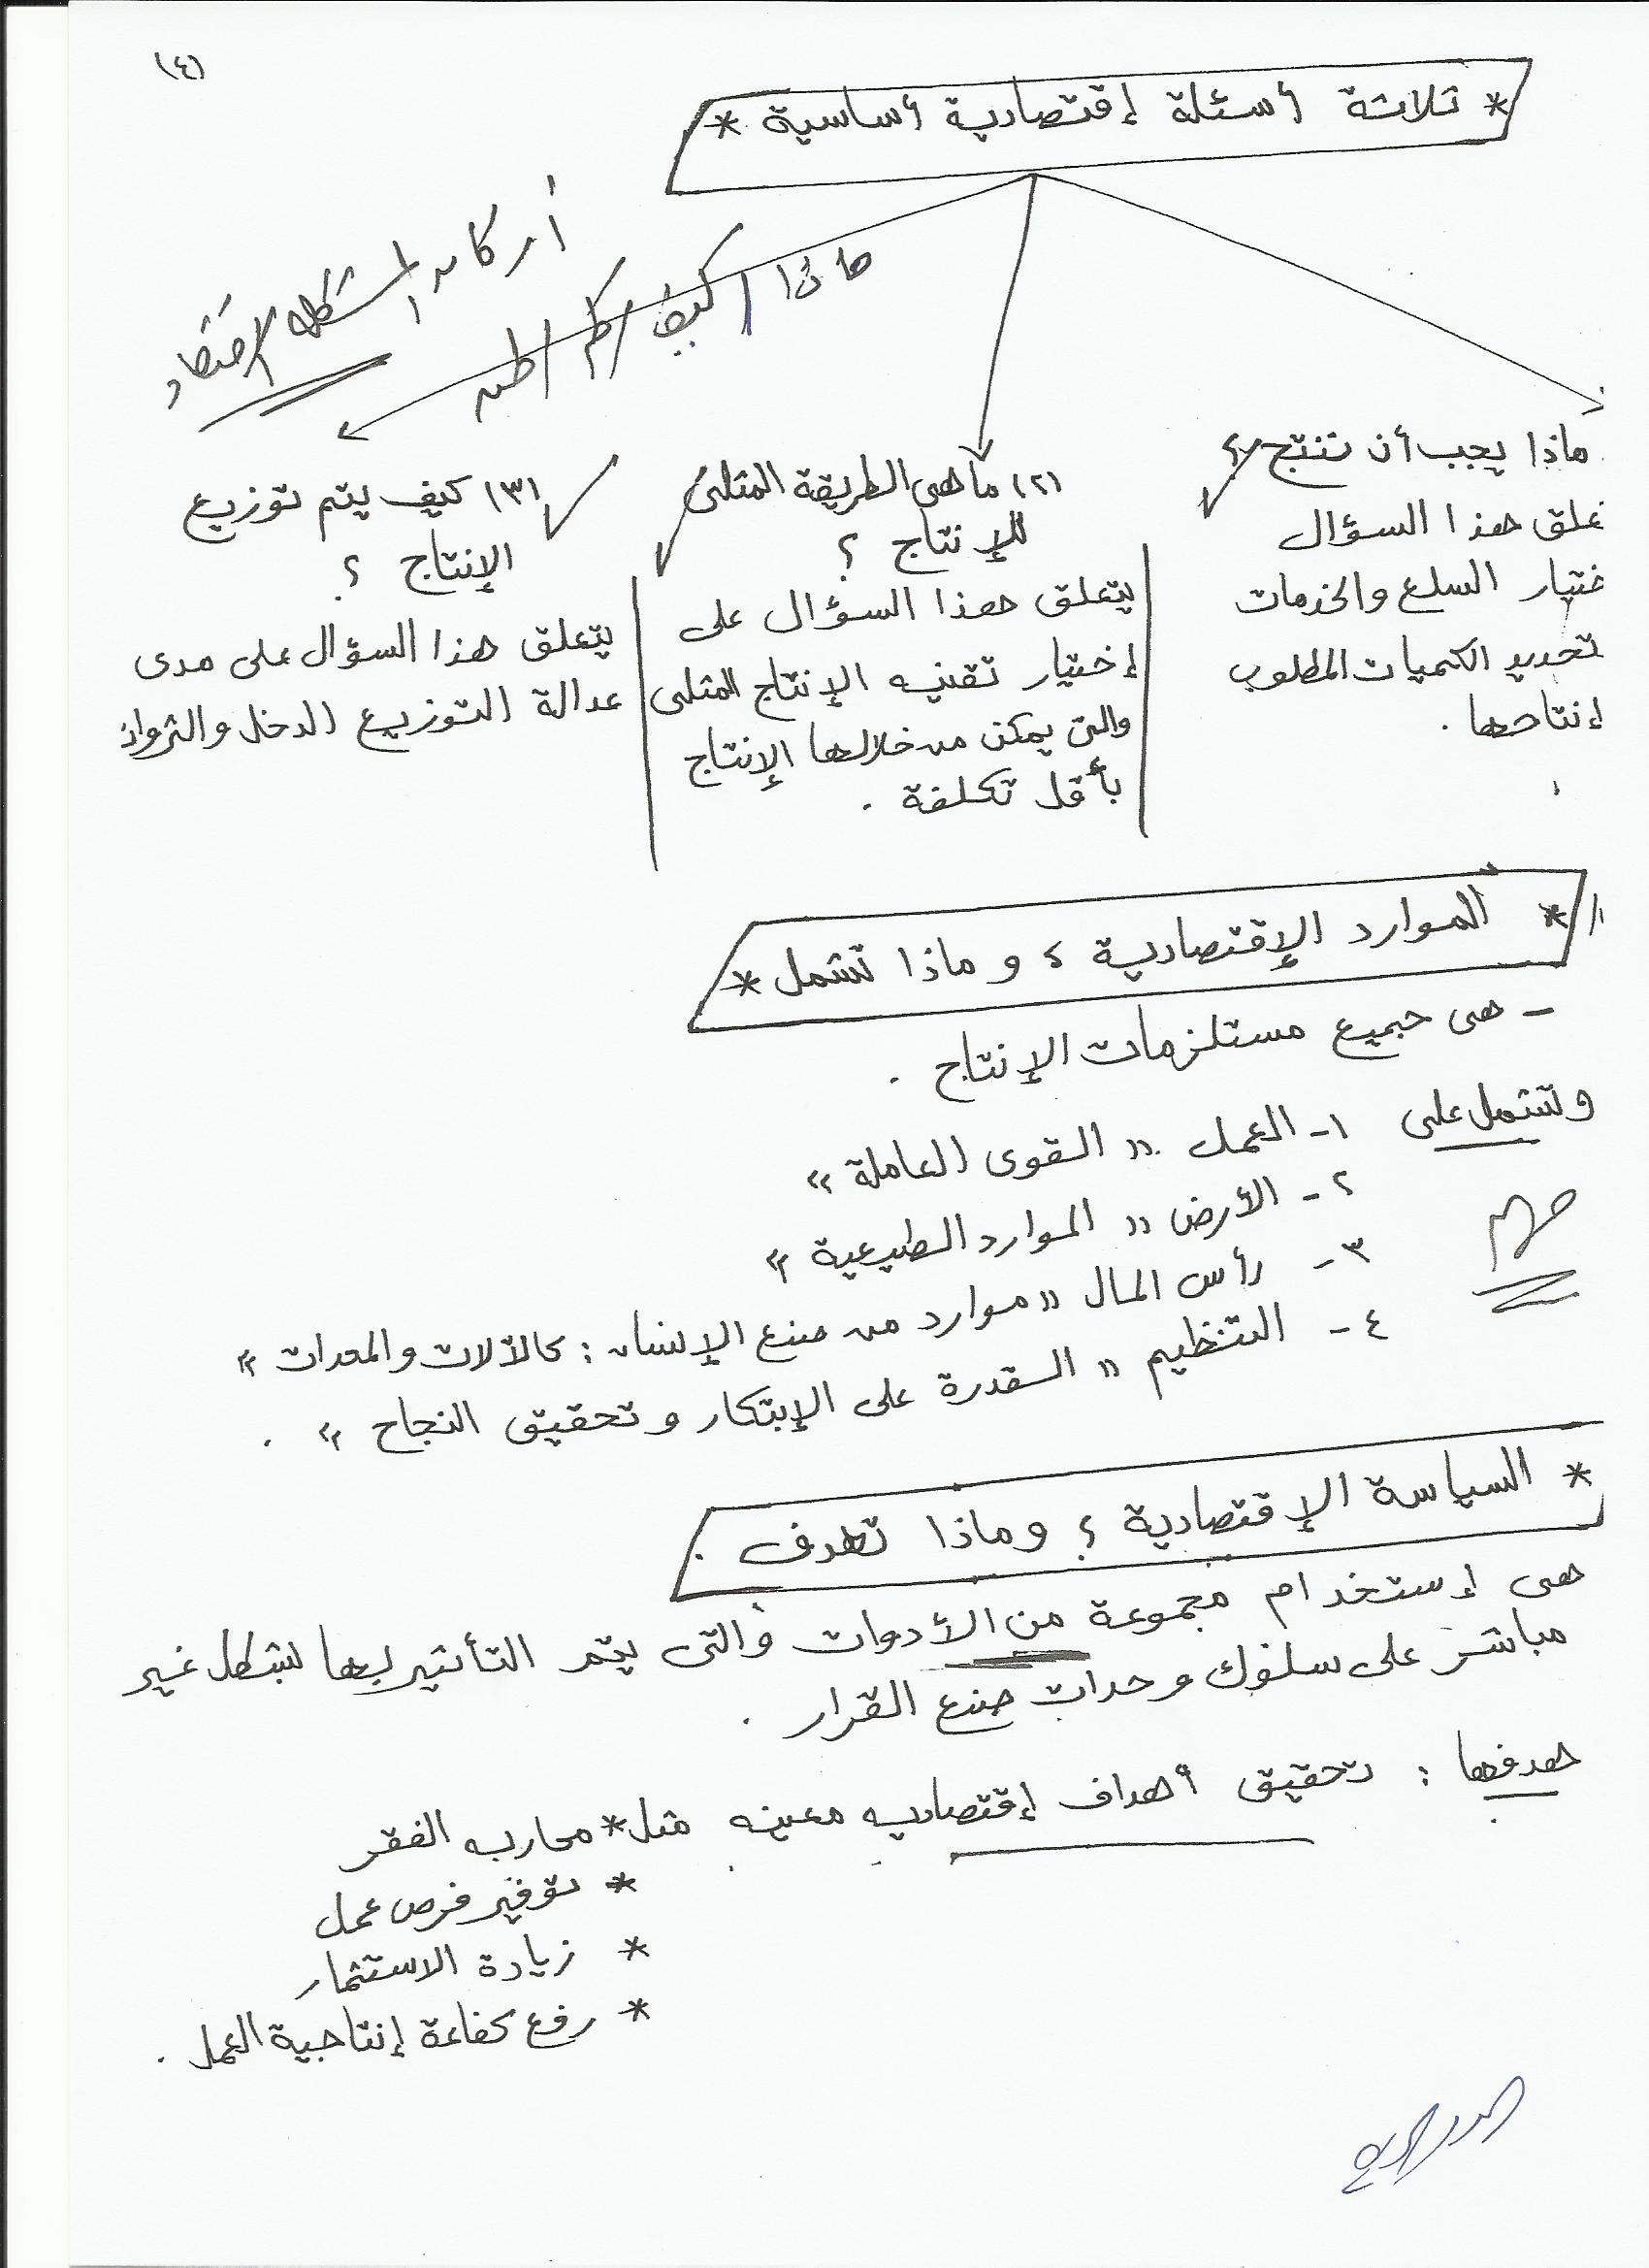 (٤)
* ثلاثة أسئلة إقتصادية أساسية *
أركان المشكلة الاقتصاد
ماذا / كيف / كم / لمن
ماذا يجب أن ننتج ؟
علق هذا السؤال
ختيار السلع والخدمات
تحديد الكميات المطلوب
إنتاجها .
(٢) ما هي الطريقة المثلى
للإنتاج ؟
يتعلق هذا السؤال على
إختيار تقنيه الإنتاج المثلى
والتي يمكن من خلالها الإنتاج
بأقل تكلفة .
(٣) كيف يتم توزيع
الإنتاج ؟
يتعلق هذا السؤال على مدى
عدالة التوزيع الدخل والثروات
* الموارد الإقتصادية ؟ وماذا تشمل *
- هي جميع مستلزمات الإنتاج .
وتشتمل على ١- العمل " القوى العاملة "
٢- الأرض " الموارد الطبيعية "
٣- رأس المال " موارد من صنع الإنسان : كالآلات والمعدات "
٤- التنظيم " القدرة على الإبتكار وتحقيق النجاح " .
مهم
* السياسة الإقتصادية ؟ وماذا تهدف .
هي إستخدام مجموعة من الأدوات والتي يتم التأثير بها بشكل غير
مباشر على سلوك وحدات صنع القرار .
هدفها : تحقيق أهداف إقتصاديه معينه مثل * محاربه الفقر
* توفير فرص عمل
* زيادة الاستثمار
* رفع كفاءة إنتاجية العمل .